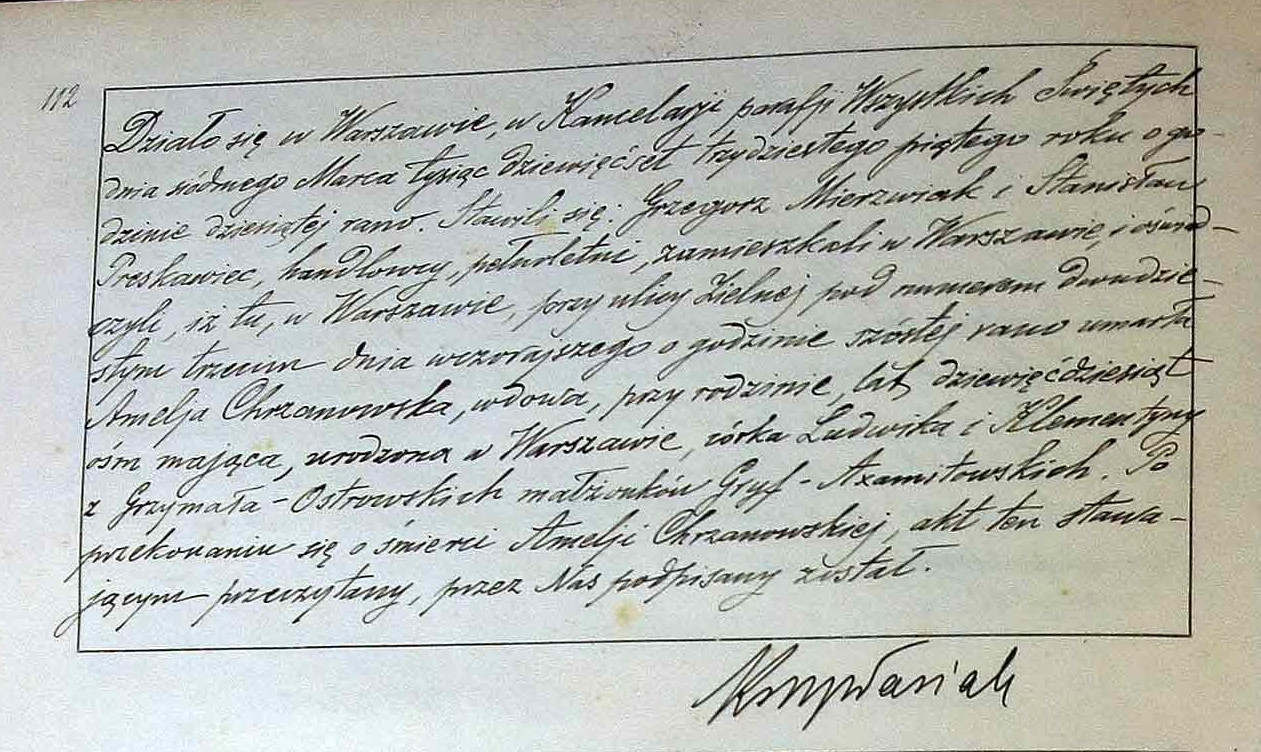 112
Działo się w Warszawie, w Kancelarji parafji Wszystkich Świętych
dnia siódmego Marca tysiąc dziewięćset trzydziestego piątego roku o go-
dzinie dziesiątej rano. Stawili się: Grzegorz Mierzwiak i Stanisław
Preskawiec, handlowcy, pełnoletni, zamieszkali w Warszawie, i oświad-
czyli, iż tu, w Warszawie, przy ulicy Zielnej pod numerem dwudzie-
stym trzecim dnia wczorajszego o godzinie szóstej rano umarła
Amelja Chrzanowska, wdowa, przy rodzinie, lat dziewięćdziesiąt
ośm mająca, urodzona w Warszawie, córka Ludwika i Klementyny
z Grzymała-Ostrowskich małżonków Gryf-Axamitowskich. Po
przekonaniu się o śmierci Amelji Chrzanowskiej, akt ten stawa-
jącym przeczytany, przez Nas podpisany został.